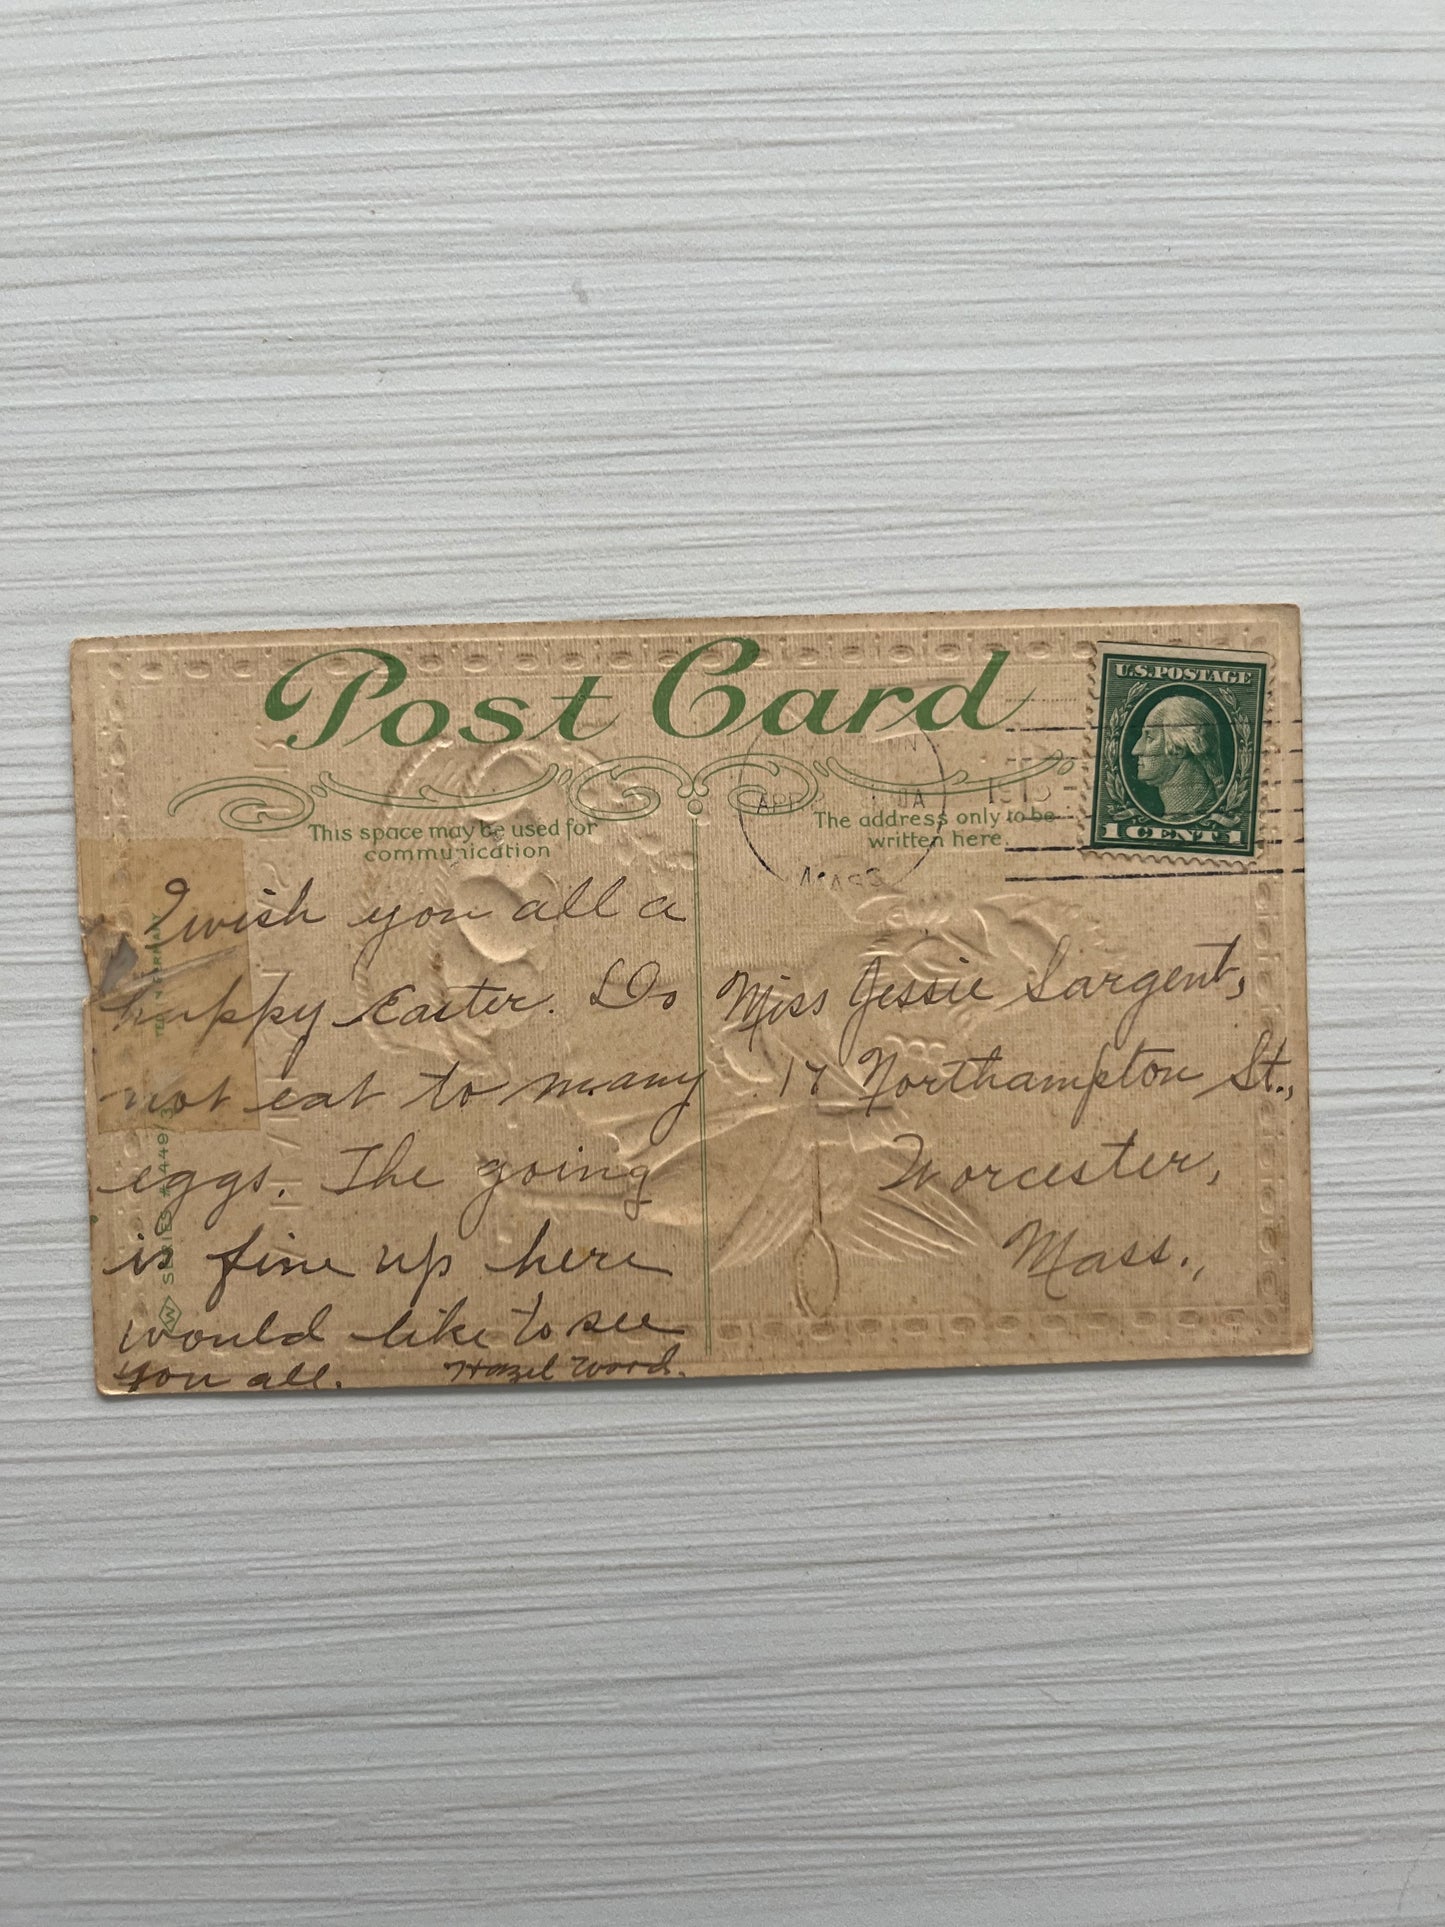 Post Card
This space may be used for
communication
The address only to be
written here.
U.S. POSTAGE
1 CENT 1
APR
1913
MASS
I wish you all a
happy Easter. Do
not eat to many
eggs. The going
is fine up here
would like to see
you all. Hazel Wood.
Miss Jessie Sargent,
17 Northampton St.,
Worcester,
Mass.,
W SERIES # 449/3